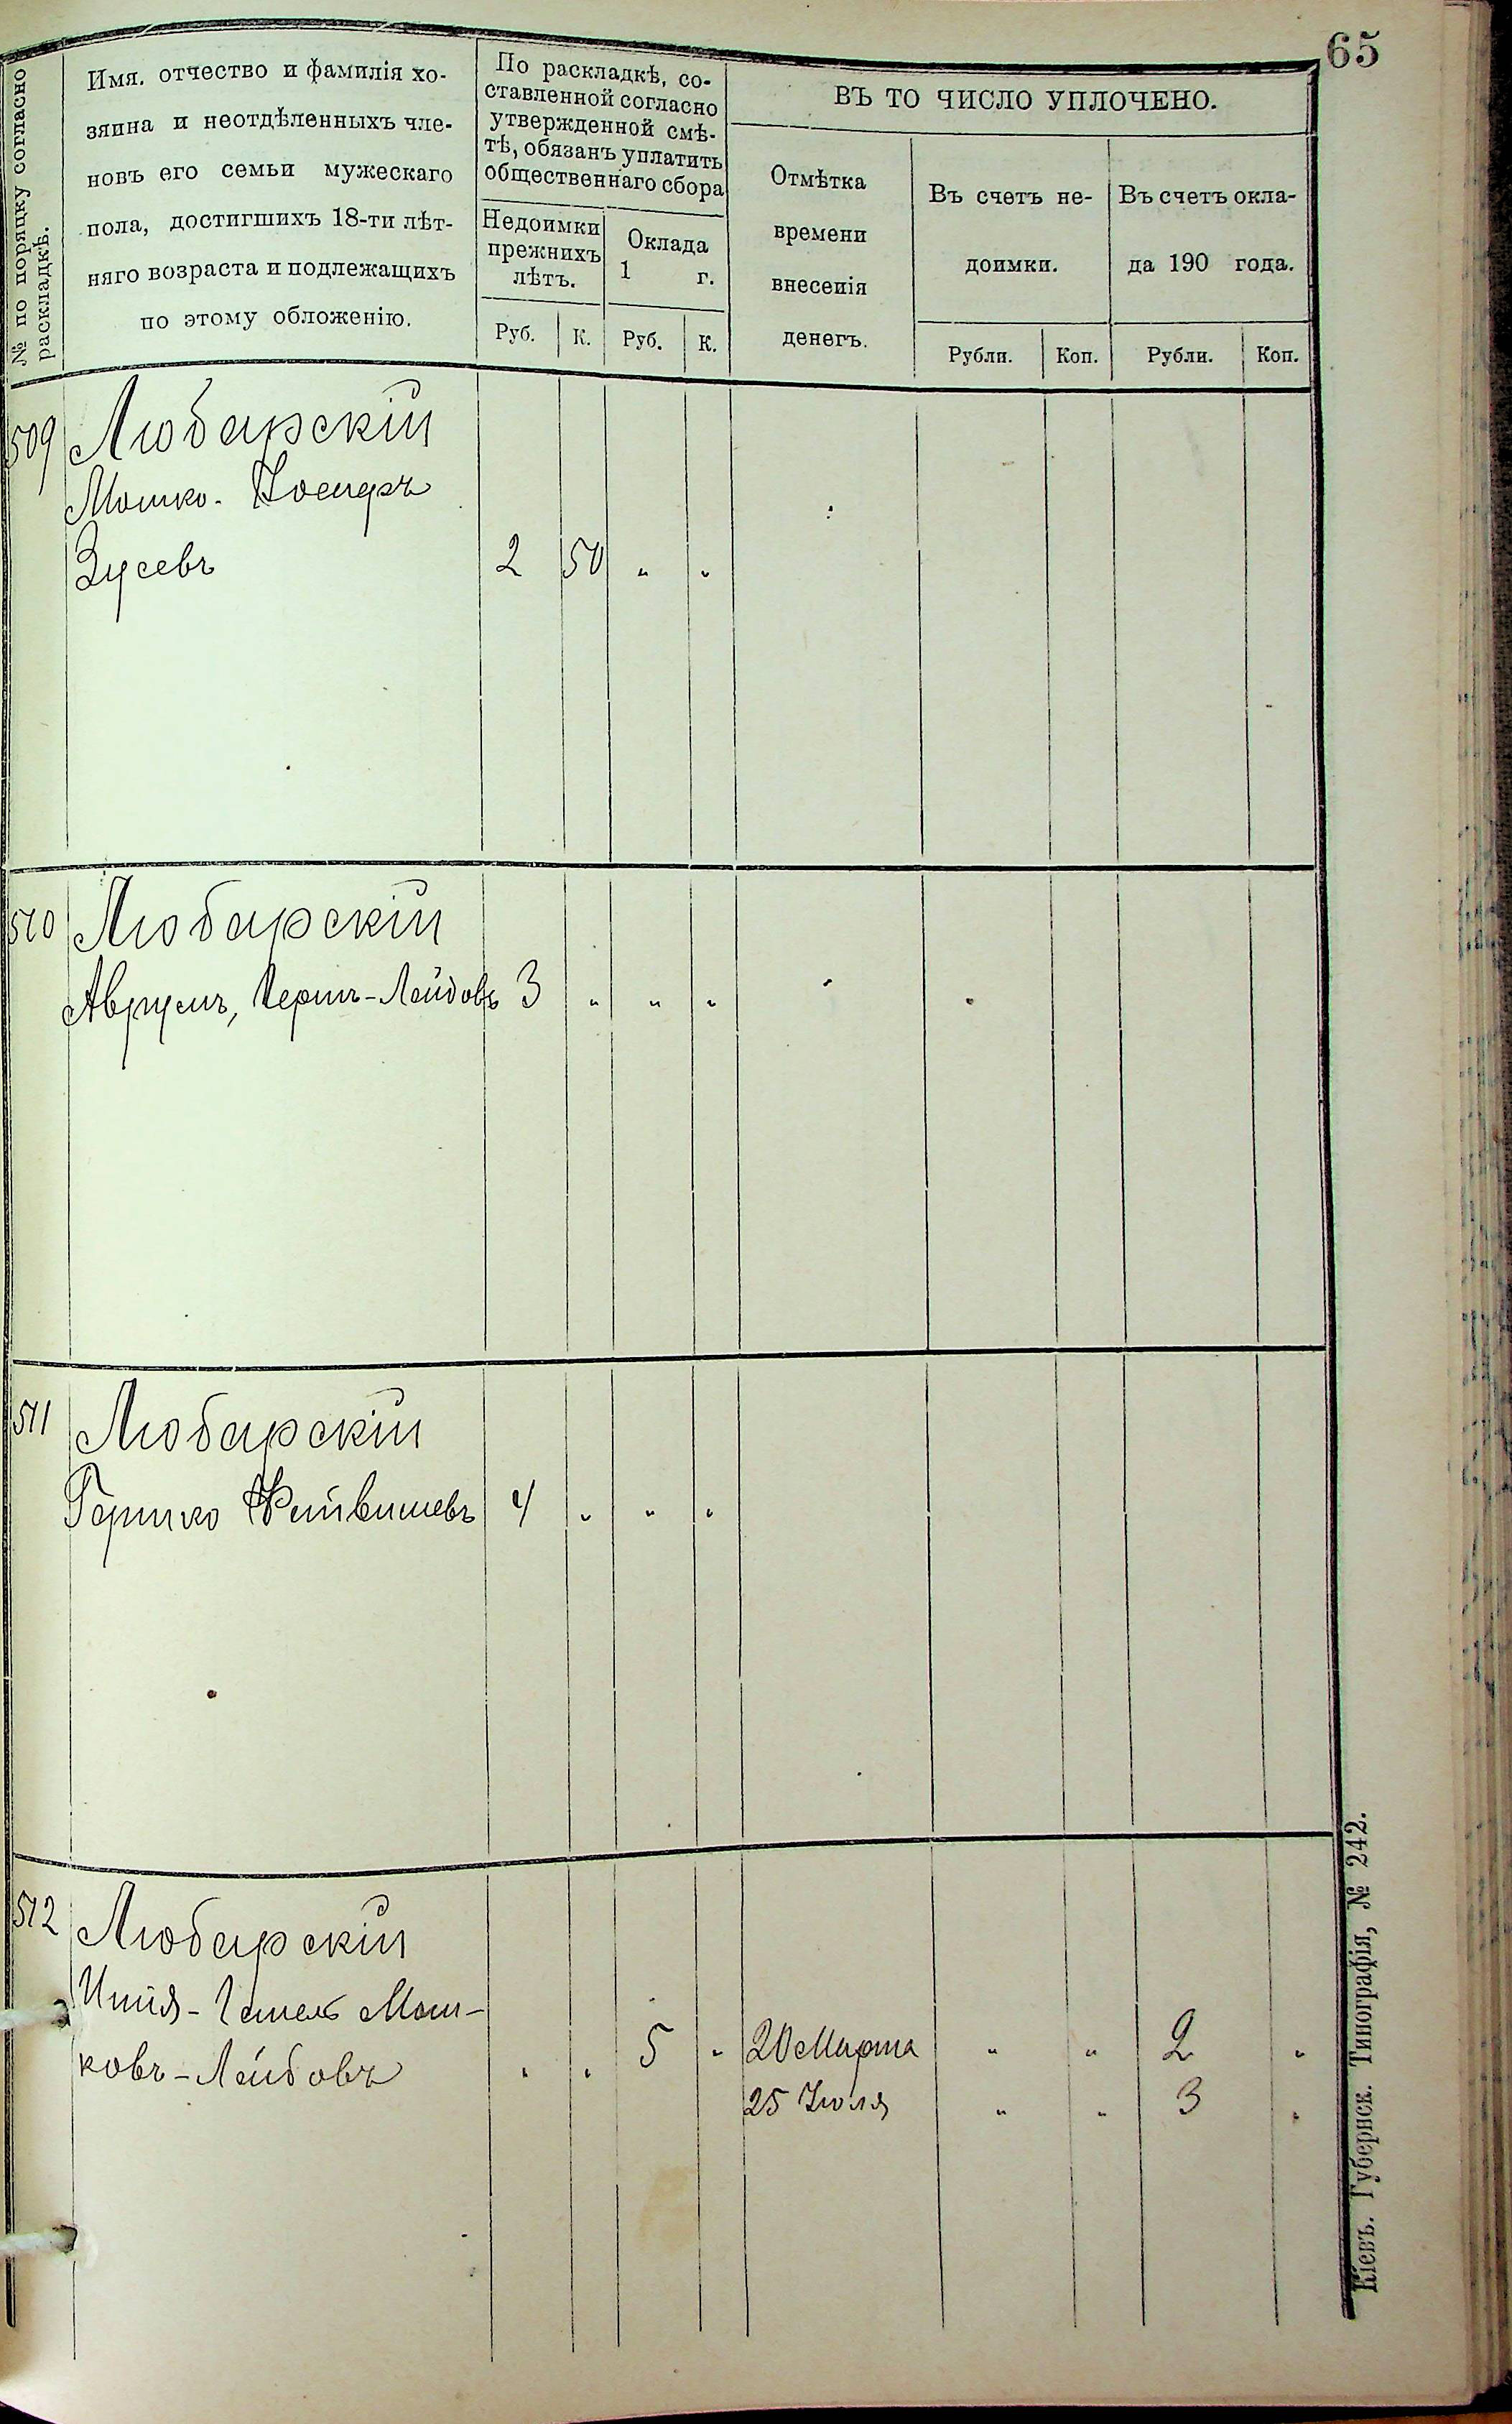 65
№ по порядку согласно
раскладкѣ.
Имя. отчество и фамилія хо-
зяина и неотдѣленныхъ чле-
новъ его семьи мужескаго
пола, достигшихъ 18-ти лѣт-
няго возраста и подлежащихъ
по этому обложенію.
По раскладкѣ, со-
ставленной согласно
утвержденной смѣ-
тѣ, обязанъ уплатить
общественнаго сбора
Недоимки
прежнихъ
лѣтъ.
Оклада
1 г.
Руб. К. Руб. К.
ВЪ ТО ЧИСЛО УПЛОЧЕНО.
Отмѣтка
времени
внесенія
денегъ.
Въ счетъ не-
доимки.
Въ счетъ окла-
да 190 года.
Рубли. Коп. Рубли. Коп.
509 Любарскій
Мошко-
Зусевъ 2 50 " "
510 Любарскій
Аврумъ, Герш-Лейбовъ 3 " " "
511 Любарскій
Гершко Фейвишевъ 4 " " "
512 Любарскій
Мош-
ковъ-Лейбовъ " " 5 " 20 Марта " " 2 "
25 Іюля " " 3 "
Кіевъ. Губернск. Типографія, № 242.